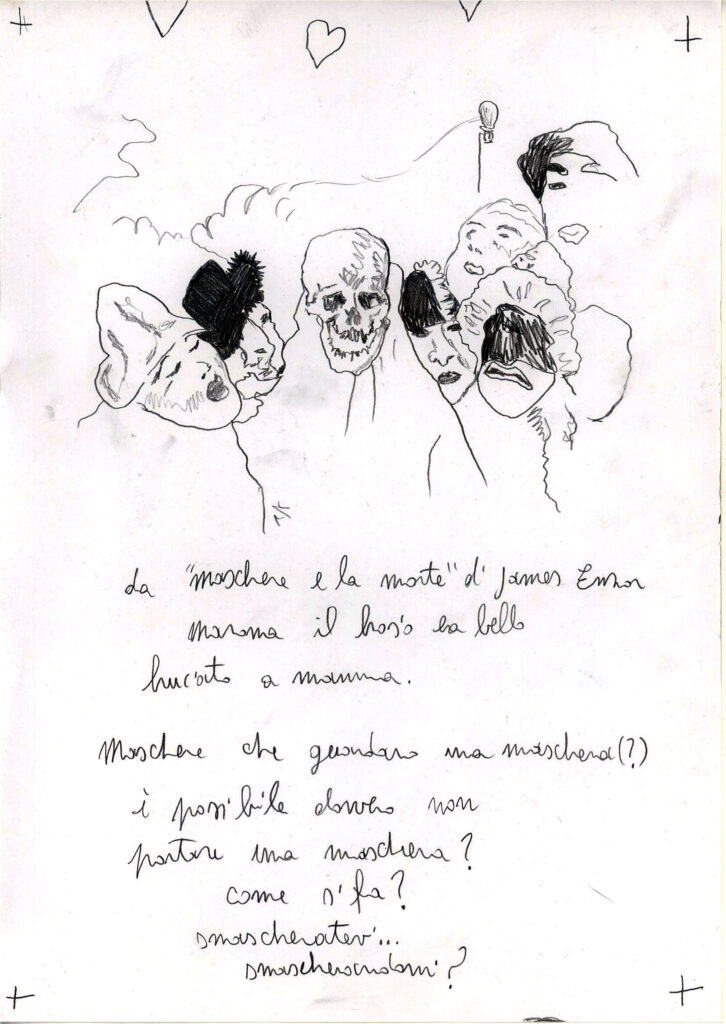 da "maschere e la morte" d' James Ensor
mamma il
bello
bucato a mamma.
Maschere che guardano una maschera(?)
è possibile davvero non
portare una maschera?
come si fa?
smascheratevi...
smascherandomi?